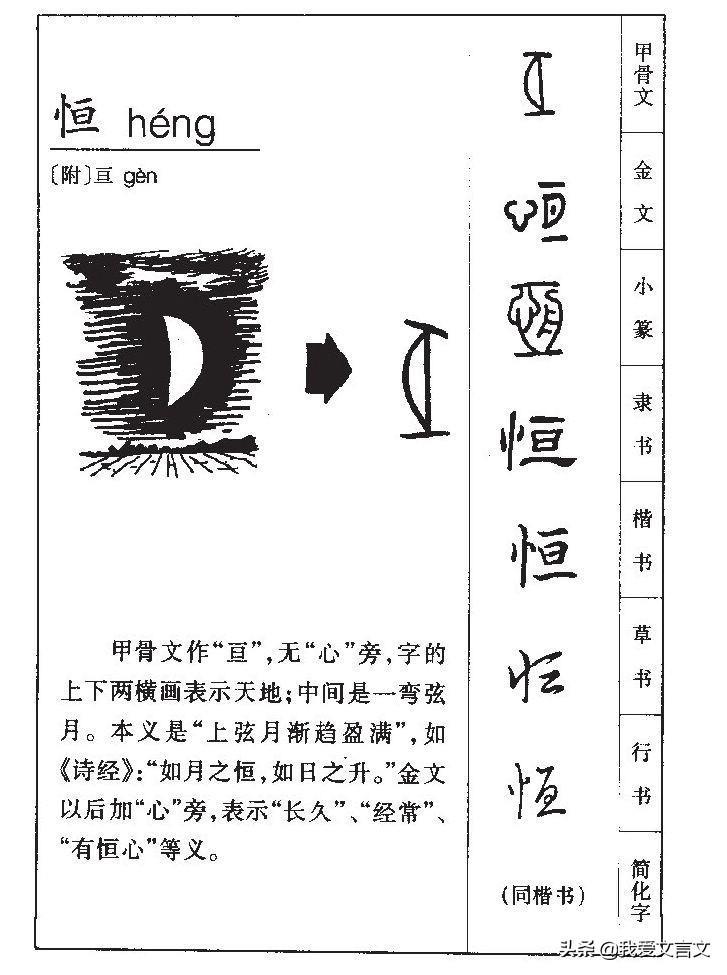 恒 héng
〔附〕亘 gèn
甲骨文作“亘”，无“心”旁，字的
上下两横画表示天地；中间是一弯弦
月。本义是“上弦月渐趋盈满”，如
《诗经》：“如月之恒，如日之升。”金文
以后加“心”旁，表示“长久”、“经常”、
“有恒心”等义。
甲骨文
金文
小篆
恒 隶书
恒 楷书
恒 草书
恒 行书
（同楷书） 简化字
头条@我爱文言文